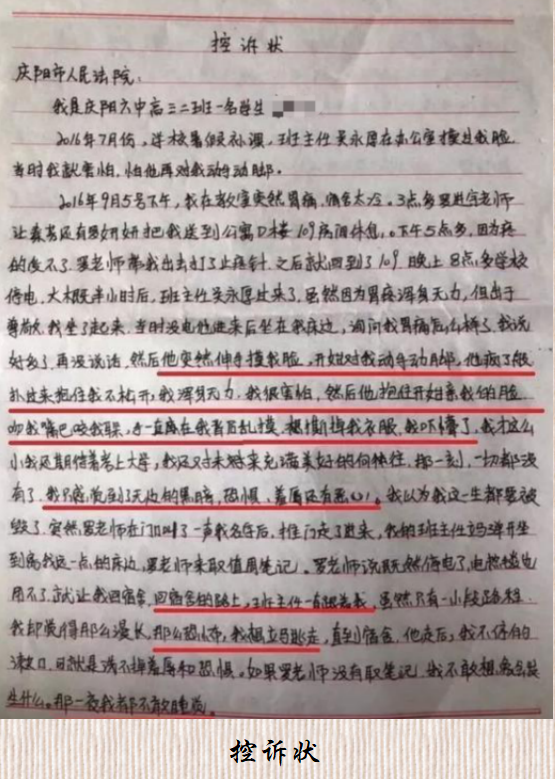 控诉状
庆阳市人民法院:
我是庆阳六中高三二班一名学生
2016年7月份,学校暑假补课,班主任吴永厚在办公室摸过我脸
当时我就害怕,怕他再对我动手动脚。
2016年9月5号下午,我在教室突然胃痛,痛苦太位。3点多罗进宇老师
让 还有罗妍妍把我送到公寓D楼109房间休息。下午5点多,因为疼
的受不了.罗老师带我出去打了止疼针.之后就回到了109.晚上8点多学校
停电,大概半小时后,班主任吴永厚过来了.虽然因为胃疼浑身无力,但出于
尊敬.我坐了起来.当时没电他进来后坐在我床边,询问我胃痛怎么样了.我说
好多了.再没说话.然后他突然伸手摸我脸,开始对我动手动脚,他疯了般
扑过来抱住我不松开,我浑身无力.我很害怕,然后他抱住开始亲我的脸
吻我嘴巴咬我耳.手一直在我背后乱摸.想撕掉我衣服.我吓懵了.我才这么
小我还期待着考上大学,我还对未来充满美好的向往.那一刻,一切都没
有了.我只感觉到了无边的黑暗,恐惧、羞辱还有恶心!我以为我这一生都要被
毁了.突然罗老师在门口叫了一声我名字后,推门走了进来,我的班主任立马弹开坐
到离我远一点的床边,罗老师来取值周笔记。罗老师说既然停电了,电热毯也
用不了.就让我回宿舍.回宿舍的路上,班主任一直跟着我.虽然只有一小段路程
我却觉得那么漫长.那么恐怖,我想立马逃走.直到宿舍.他走后,我不停的
漱口.可就是洗不掉羞辱和恐惧。如果罗老师没有取笔记.我不敢想象会发
生什么。那一夜我都不敢睡着。
控诉状